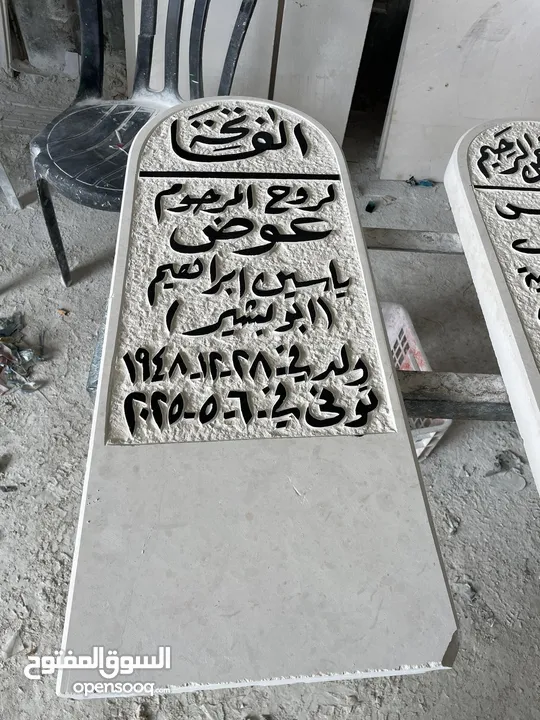 الفاتحة
لروح المرحوم
عوض
ياسين ابراهيم
(ابو بشير)
ولد في - ٢٨-١٢-١٩٤٨
توفى في - ٦-٥-٢٠٢٥
الرحيم
السوق المفتوح
opensooq.com